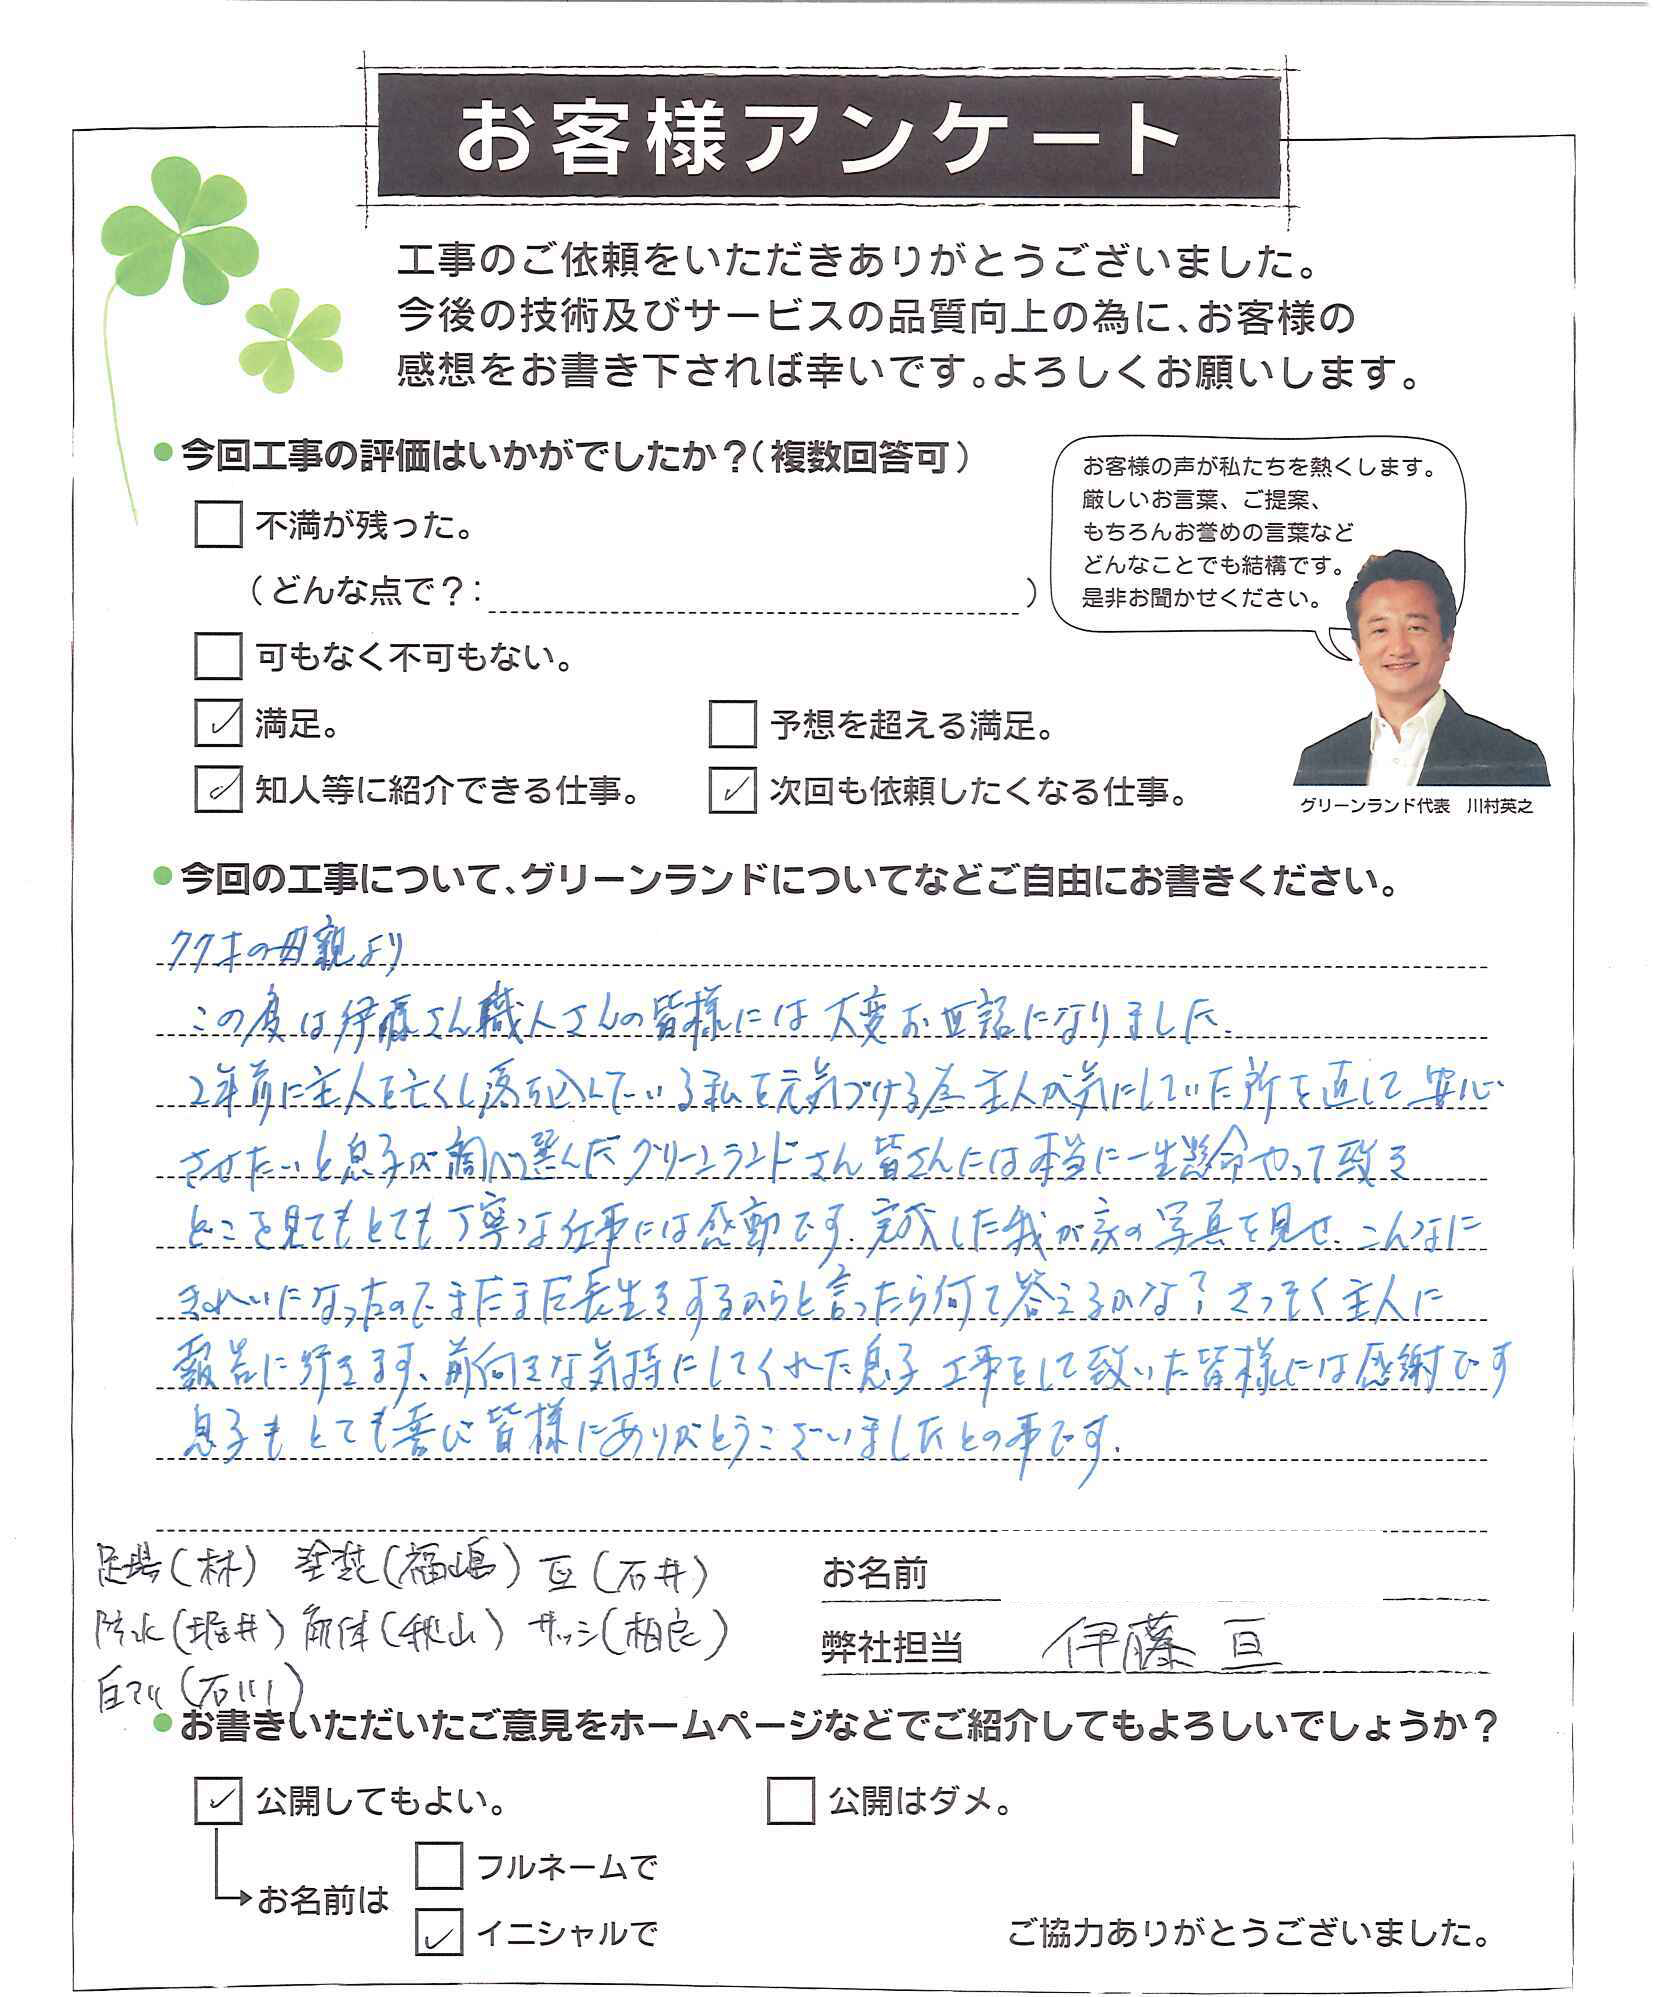 お客様アンケート
工事のご依頼をいただきありがとうございました。
今後の技術及びサービスの品質向上の為に、お客様の
感想をお書き下されば幸いです。よろしくお願いします。
●今回工事の評価はいかがでしたか？（複数回答可）
不満が残った。
（どんな点で？： ）
可もなく不可もない。
✓ 満足。 予想を超える満足。
✓ 知人等に紹介できる仕事。 ✓ 次回も依頼したくなる仕事。
お客様の声が私たちを熱くします。
厳しいお言葉、ご提案、
もちろんお誉めの言葉など
どんなことでも結構です。
是非お聞かせください。
グリーンランド代表　川村英之
●今回の工事について、グリーンランドについてなどご自由にお書きください。
77才の母親より
この度は伊藤さん職人さんの皆様には大変お世話になりました.
2年前に主人を亡くし落ち込んでいる私を元気づける為 主人が気にしていた所を直して安心
させたいと息子が調べ選んだグリーンランドさん皆さんには本当に一生懸命やって致き
どこを見てもとても丁寧な仕事には感動です.完成した我が家の写真を見せ.こんなに
きれいになったのでまだまだ長生きするからと言ったら何て答えるかな？さっそく主人に
報告に行きます、前向きな気持にしてくれた息子 工事をして致いた皆様には感謝です
息子もとても喜び皆様にありがとうございましたとの事です.
足場（林） 塗装（福嶋） 瓦（石井）
防水（堀井） 解体（秋山） サッシ（相良）
白アリ（石川）
お名前
弊社担当 伊藤 亘
●お書きいただいたご意見をホームページなどでご紹介してもよろしいでしょうか？
✓ 公開してもよい。 公開はダメ。
お名前は
フルネームで
✓ イニシャルで
ご協力ありがとうございました。